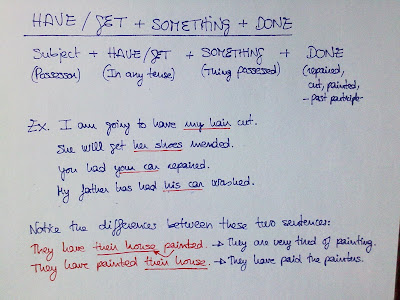 HAVE / GET + SOMETHING + DONE
Subject + HAVE/GET + SOMETHING + DONE
(Possessor) (In any tense) (Thing possessed) (repaired,
cut, painted,
- past participle
Ex. I am going to have my hair cut.
She will get her shoes mended.
You had your car repaired.
My father has had his car washed.
Notice the difference between these two sentences:
They have their house painted. → They are very tired of painting.
They have painted their house. → They have paid the painters.